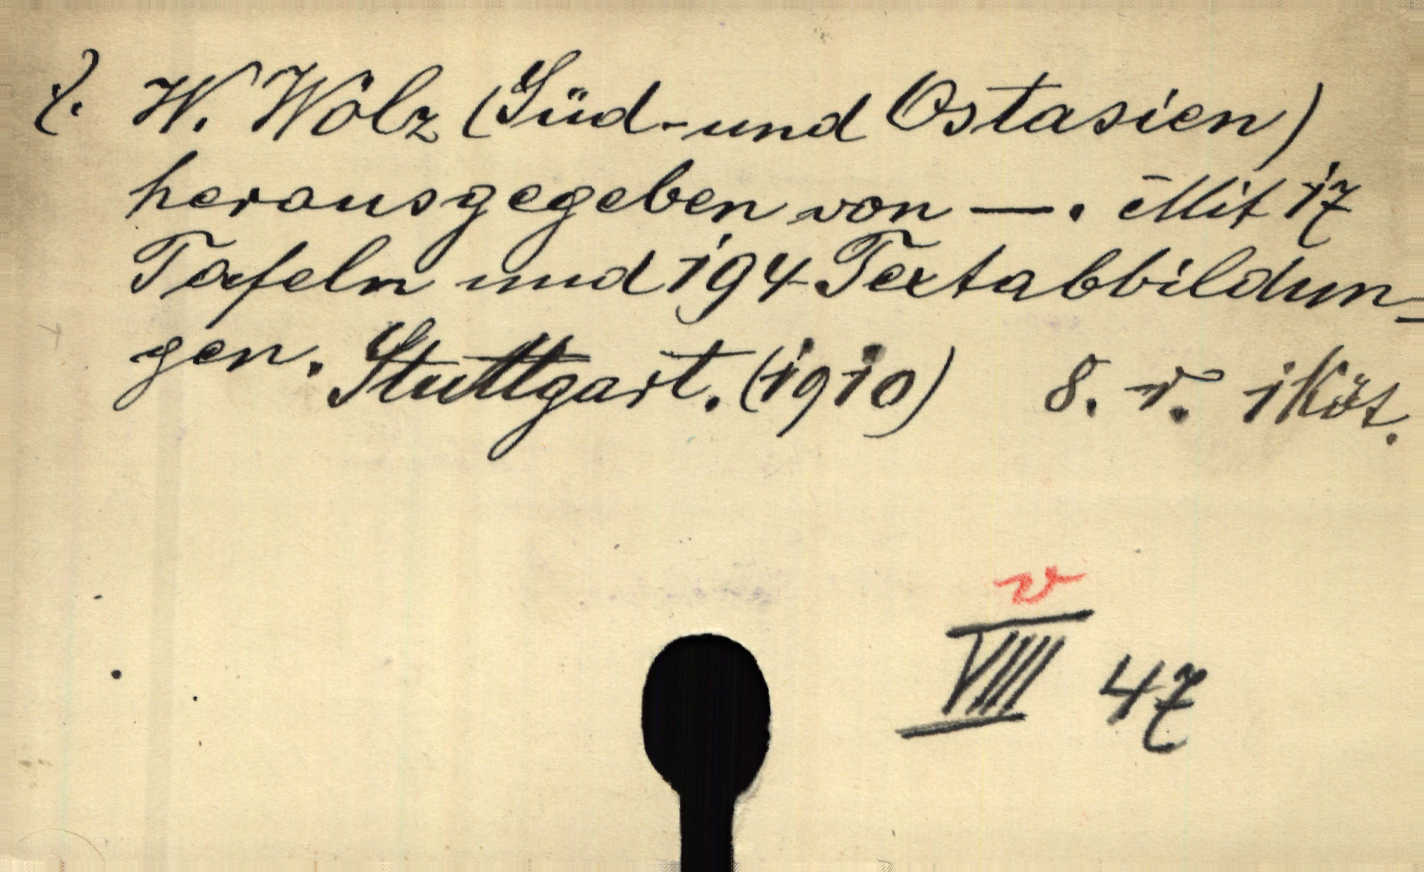 W. Wölz (Süd- und Ostasien)
herausgegeben von —. Mit 17
Tafeln und 194 Textabbildun-
gen. Stuttgart. (1910) 8. r. 1 Köt.
v
VIII 47